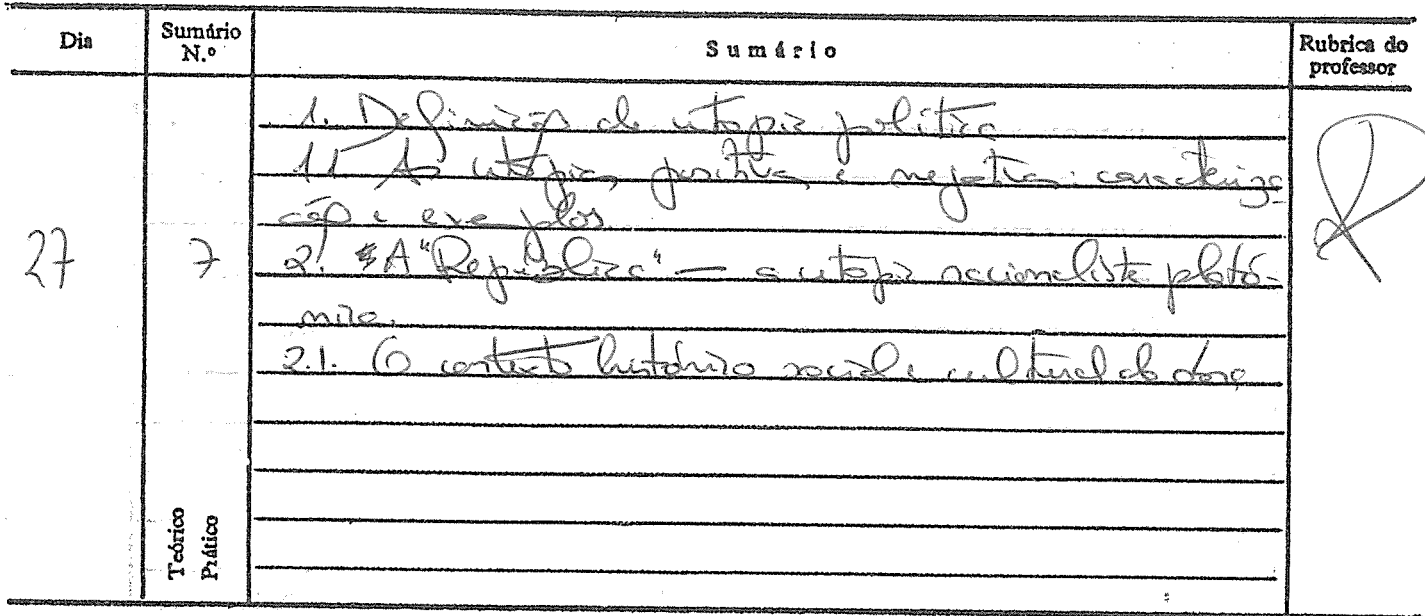 Dia
Sumário N.º
Sumário
Rubrica do professor
1. Definição de utopia política
1.1 As utopias positivas e negativas: caracteriza-
ção e exemplos
27
7
2. A "República" — a utopia racionalista plató-
nica.
2.1. O contexto histórico social e cultural da obra
Teórico
Prático